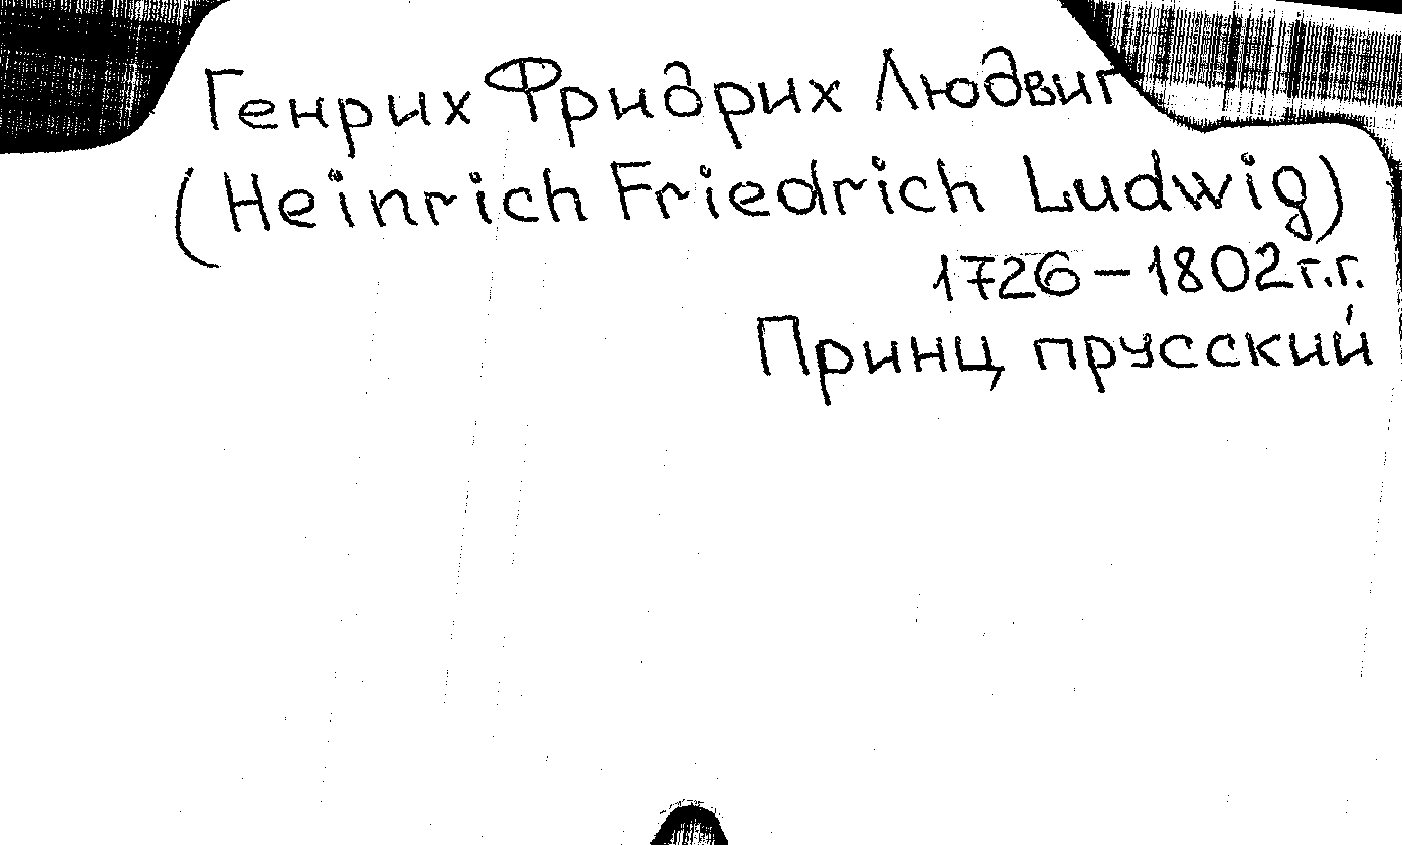 Генрих Фридрих Людвиг
(Heinrich Friedrich Ludwig)
1726 – 1802 г.г.
Принц прусский